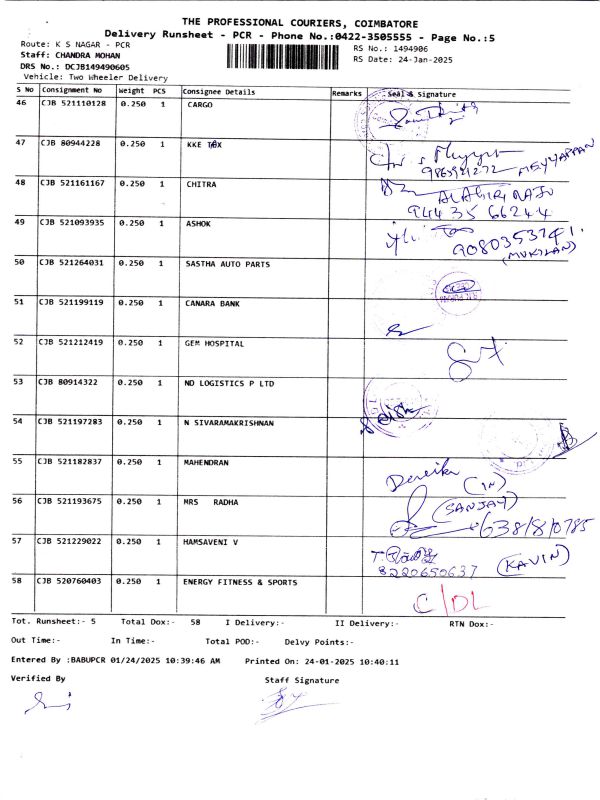 THE PROFESSIONAL COURIERS, COIMBATORE
Delivery Runsheet - PCR - Phone No.:0422-3505555 - Page No.:5
Route: K S NAGAR - PCR
RS No.: 1494906
Staff: CHANDRA MOHAN
RS Date: 24-Jan-2025
DRS No.: DCJB149490605
Vehicle: Two Wheeler Delivery
S No Consignment No Weight PCS Consignee Details Remarks Seal & Signature
46 CJB 521110128 0.250 1 CARGO
47 CJB 80944228 0.250 1 KKE TEX
MEYYAPPAN
48 CJB 521161167 0.250 1 CHITRA
ALAGIRI RAJU
94435 66244
49 CJB 521093935 0.250 1 ASHOK
9080353741.
(MUKILAN)
50 CJB 521264031 0.250 1 SASTHA AUTO PARTS
51 CJB 521199119 0.250 1 CANARA BANK
52 CJB 521212419 0.250 1 GEM HOSPITAL
53 CJB 80914322 0.250 1 ND LOGISTICS P LTD
54 CJB 521197283 0.250 1 N SIVARAMAKRISHNAN
55 CJB 521182837 0.250 1 MAHENDRAN
(IN)
56 CJB 521193675 0.250 1 MRS RADHA
(SANJAY)
6381810785
57 CJB 521229022 0.250 1 HAMSAVENI V
(KAVIN)
8220650637
58 CJB 520760403 0.250 1 ENERGY FITNESS & SPORTS
C/DL
Tot. Runsheet:- 5 Total Dox:- 58 I Delivery:- II Delivery:- RTN Dox:-
Out Time:- In Time:- Total POD:- Delvy Points:-
Entered By :BABUPCR 01/24/2025 10:39:46 AM Printed On: 24-01-2025 10:40:11
Verified By Staff Signature